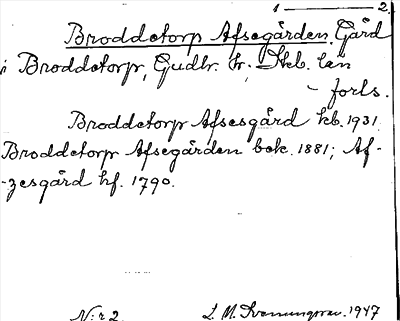 1 — 2.
Broddetorp Afsegården. Gård
i Broddetorp, Gudh. hr; Skb. län
- forls.
Broddetorp Afsesgård kb. 1931.
Broddetorp Afsegården bok. 1881; Af-
-zesgård hf. 1790.
N:r 2. L. M. Svenungsson. 1947